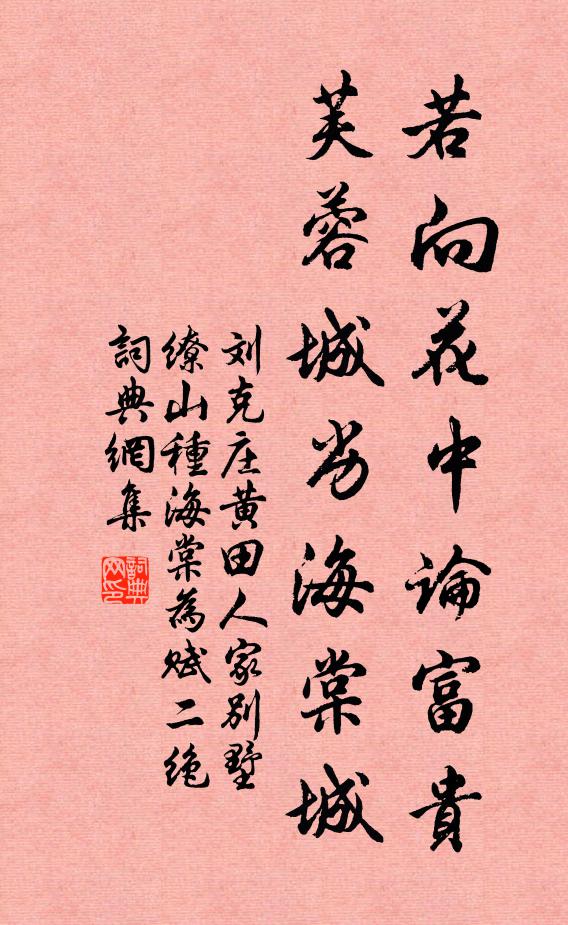 若向花中論富貴
芙蓉城劣海棠城
刘克庄黄田人家別墅
缭山種海棠為赋二绝
詞典網集
詞典网印